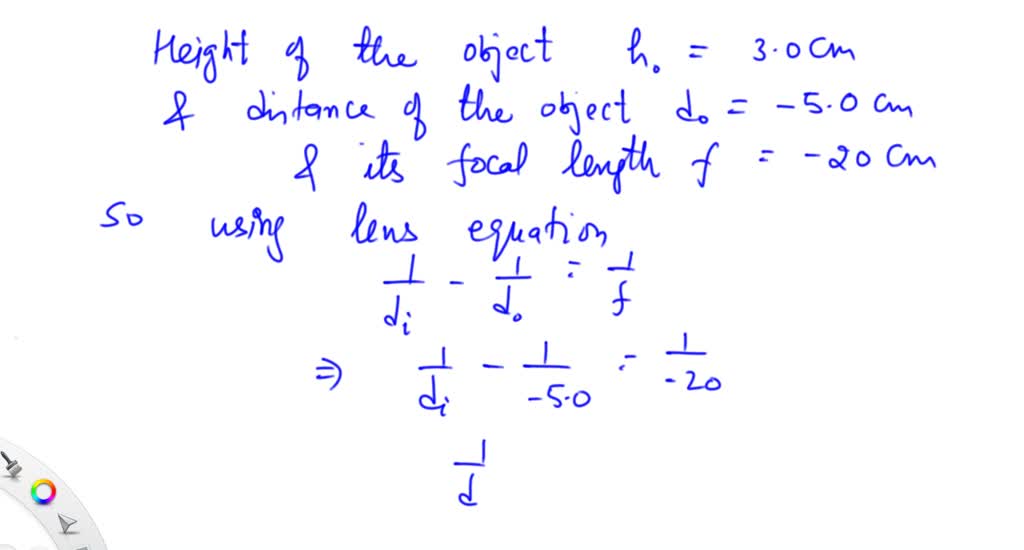 Height of the object h₀ = 3.0 cm
& distance of the object d₀ = -5.0 cm
& its focal length f = -20 cm
So using lens equation
1/dᵢ - 1/d₀ = 1/f
⇒ 1/dᵢ - 1/-5.0 = 1/-20
1/d